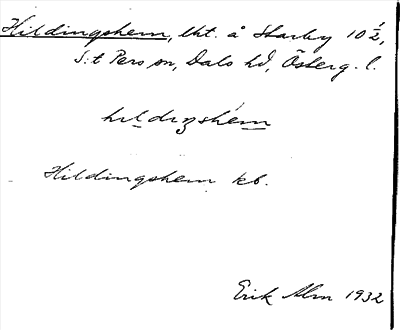 Hildingshem, lht. å Starby 10 1/2,
S:t Pers sn, Dals hd, Österg. l.
hıldıŋshem
Hildingshem kb.
Erik Alm 1932